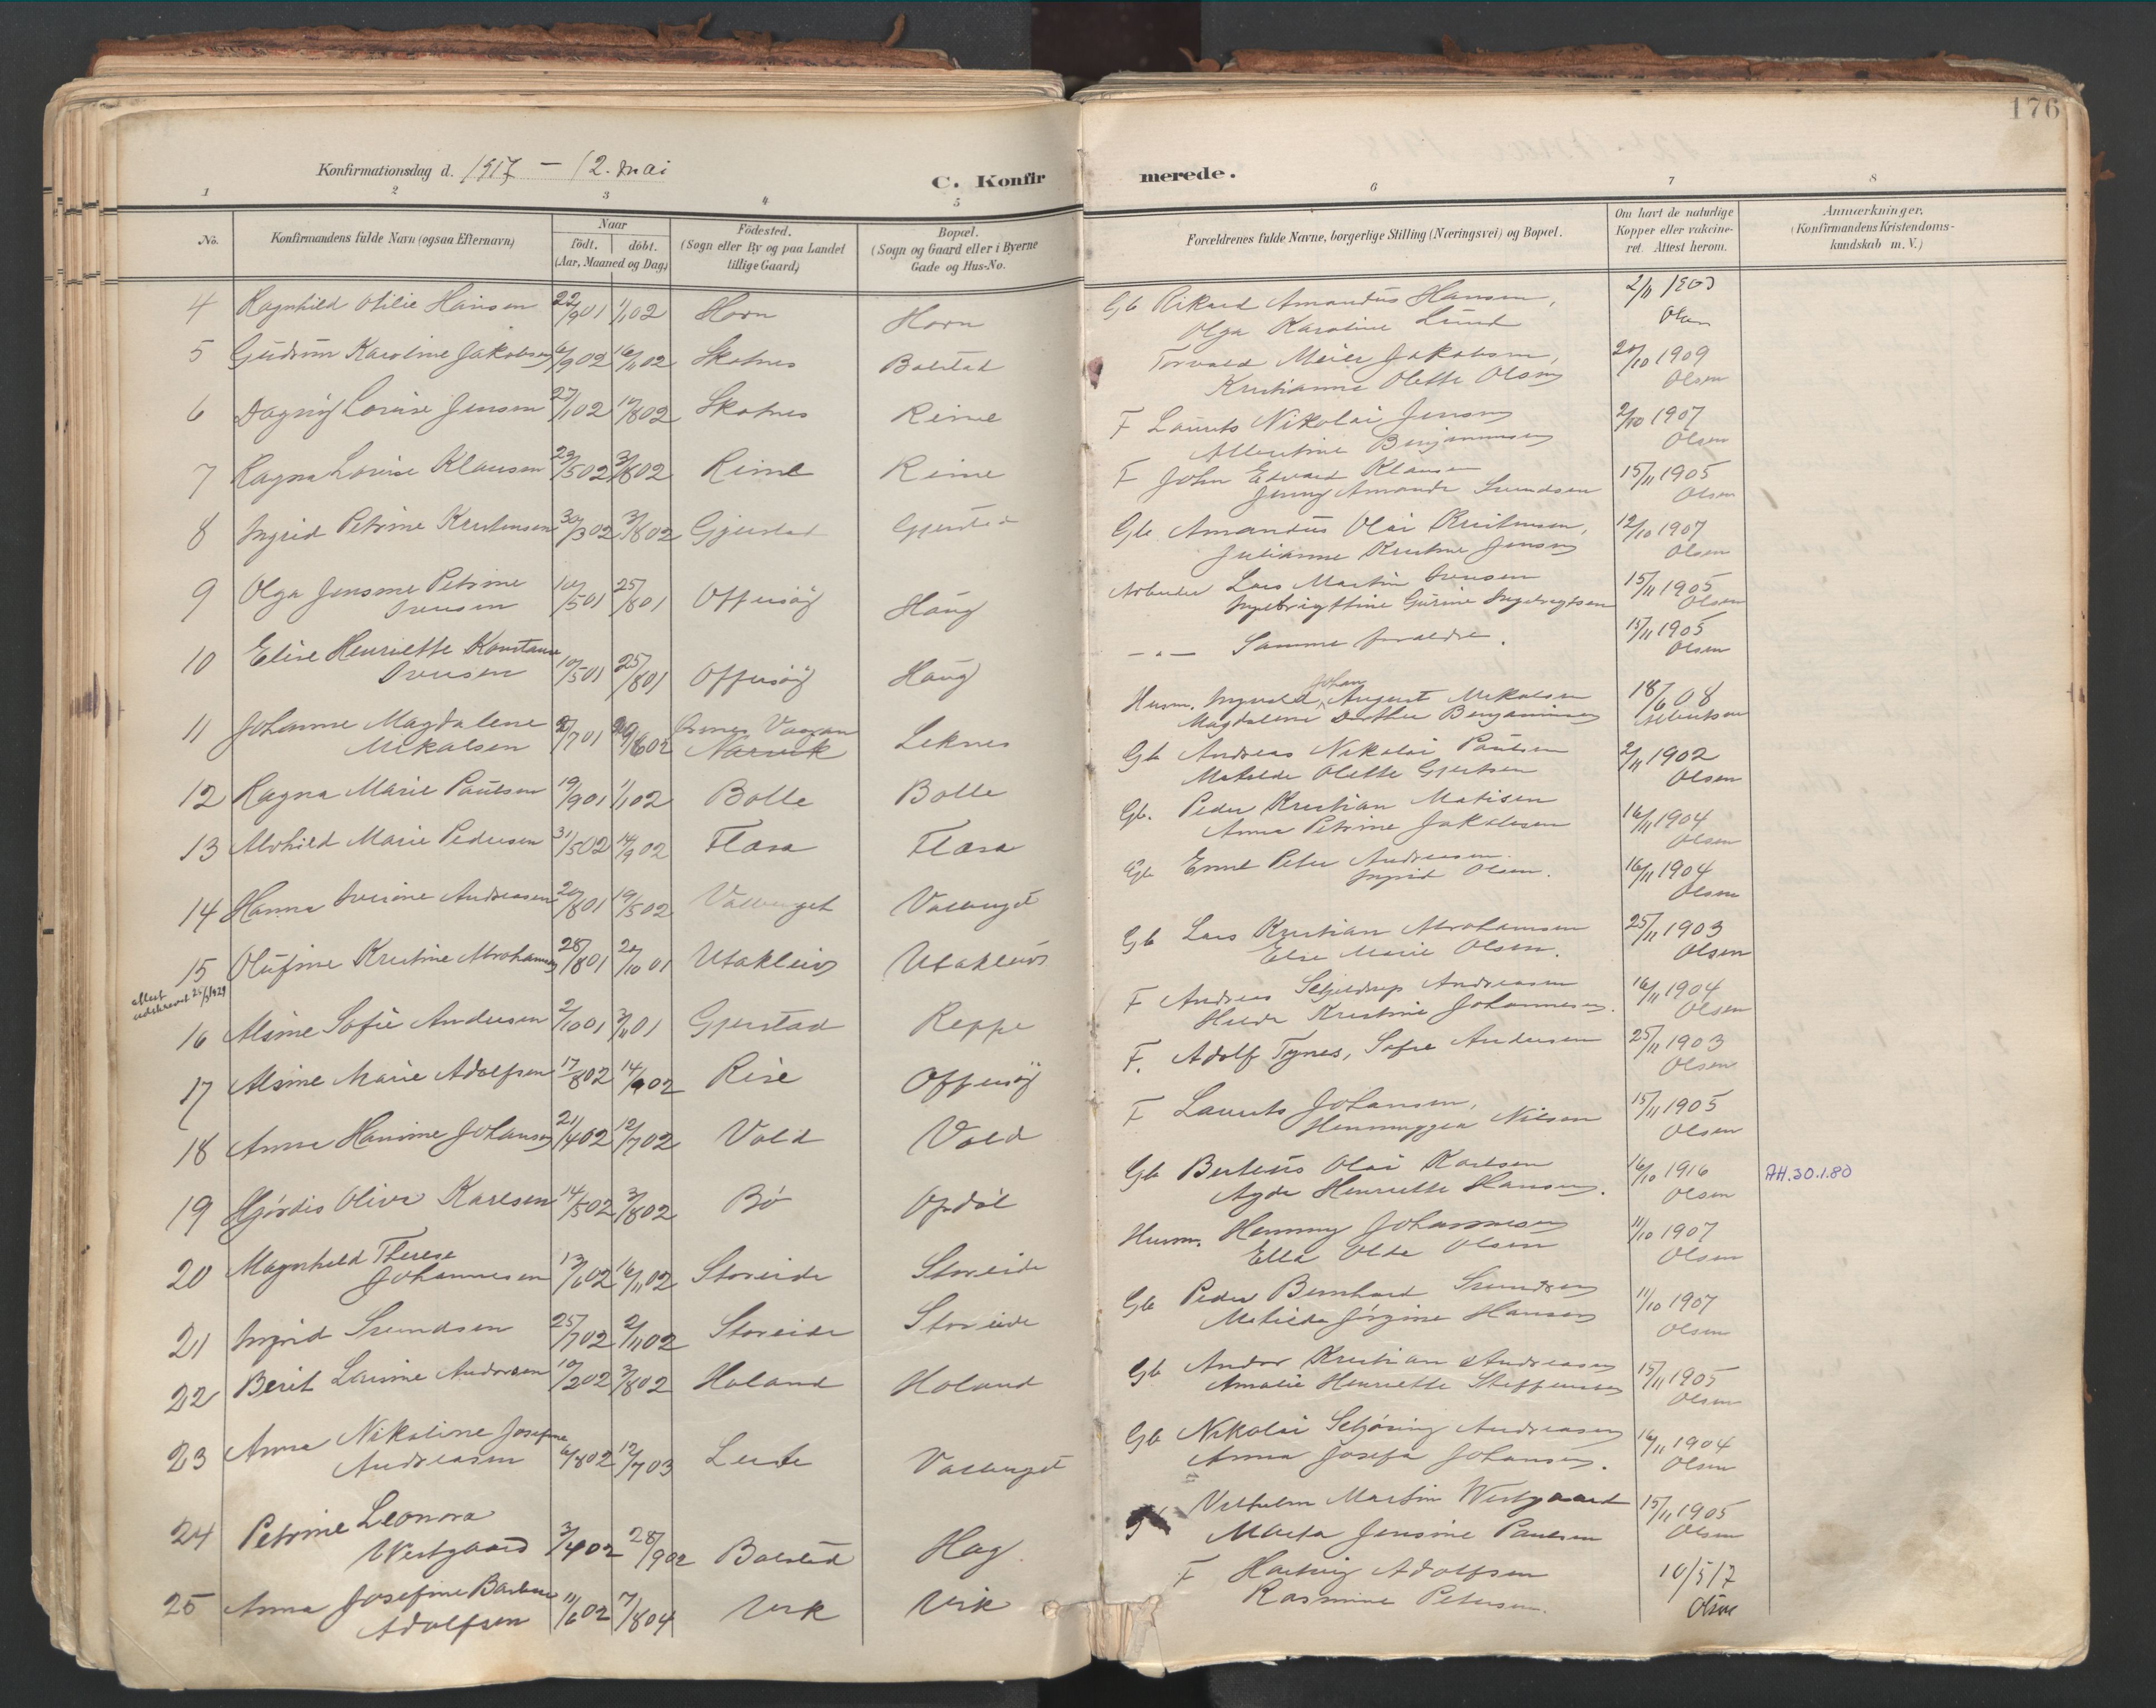 176
Konfirmationsdag d. 1917 - 12. mai
C. Konfirmerede.
1 2 3 4 5 6 7 8
No. Konfirmandens fulde Navn (ogsaa Efternavn) Naar födt. döbt. (Aar, Maaned og Dag) Födested. (Sogn eller By og paa Landet tillige Gaard) Bopæl. (Sogn og Gaard eller i Byerne Gade og Hus-No. Forældrenes fulde Navne, borgerlige Stilling (Næringsvei) og Bopæl. Om havt de naturlige Kopper eller vakcineret. Attest herom. Anmærkninger. (Konfirmandens Kristendomskundskab m. V.)
4 Ragnhild Otilie Hansen 22/9 01 1/1 02 Horn Horn Gb Rikard Amandus Hansen,
Olga Karoline Lund 2/11 1903 Olsen
5 Gudrun Karoline Jakobsen 6/9 02 16/11 02 Skotnes Balstad Torvald Meier Jakobsen,
Kristianne Olette Olsen 20/10 1909 Olsen
6 Dagny Lovise Jensen 27/1 02 17/8 02 Skotnes Reine F Laurits Nikolai Jensen
Albertine Benjaminsen 2/10 1907 Olsen
7 Ragna Lovise Klausen 29/5 02 3/8 02 Reine Reine F John Edvard Klausen
Jenny Amanda Svendsen 15/11 1905 Olsen
8 Ingrid Petrine Kristensen 30/3 02 3/8 02 Gjerstad Gjerstad Gb Amandus Olai Kristensen,
Julianne Kristine Jensen 12/10 1907 Olsen
9 Olga Jensine Petrine
Iversen 10/5 01 25/8 01 Offersøy Haug Arbeider Lars Martin Iversen
Ingebrigttine Gurine Ingebrigtsen 15/11 1905 Olsen
10 Elise Henriette Konstanse
Iversen 10/5 01 25/8 01 Offersøy Haug - " - Samme foreldre. 15/11 1905 Olsen
11 Johanne Magdalene
Mikalsen /7 01 02 Vaagan Narvik Leknes Husm. Ingvald Johan August Mikalsen
Magdalene Benjaminsen 18/6 08
12 Ragna Marie Paulsen 19/9 01 1/1 02 Bolle Bolle Gb Andreas Nikolai Paulsen
Matilde Olette Gjertsen 2/11 1902 Olsen
13 Alvhild Marie Pedersen 31/5 02 14/9 02 Flæsa Flæsa Gb. Peder Kristian Matisen
Anna Petrine Jakobsen 16/11 1904 Olsen
14 Hanna Iverine Andreasen 20/8 01 19/5 02 Valberget Valberget Gb Ernst Peter Andreasen
Ingrid Olsen. 16/11 1904 Olsen
15 Olufine Kristine Abrahamsen 28/8 01 20/10 01 Utakleiv Utakleiv Gb Lars Kristian Abrahamsen
Else Marie Olsen. 25/11 1903 Olsen
attest
udskrevet 25/3 1929
16 Alsine Sofie Andersen 2/10 01 3/11 01 Gjerstad Reppe F Andreas Schjeldrup Andreasen
Hilda Kristine Johannesen. 16/11 1904 Olsen
17 Alsine Marie Adolfsen 17/8 02 14/9 02 Rise Offersøy F. Adolf Tynes, Sofie Andersen 25/11 1903 Olsen
18 Anna Hansine Johansen 21/4 02 12/7 02 Vold Vold F Laurits Johansen,
Nilsen 15/11 1905 Olsen
19 Hjørdis Olive Karlsen 14/5 02 3/8 02 Bø Opdøl Gb Berteus Olai Karlsen
Agda Henriette Hansen. 16/10 1916 Olsen AH. 30.1.80
20 Magnhild Therese
Johannesen 13/6 02 16/11 02 Storeide Storeide Husm. Henning Johannesen
Ella Olde Olsen 11/10 1907 Olsen
21 Ingrid Svendsen 25/7 02 2/11 02 Storeide Storeide Gb Peder Bernhard Svendsen
Matilde Jørgine Hansen 11/10 1907 Olsen
22 Berit Lavine Andorsen 10/2 02 3/8 02 Holand Holand Gb Andor Kristian Andreasen
Amalie Henriette Steffensen 15/11 1905 Olsen
23 Anna Nikoline Josefine
Andreasen 6/8 02 12/7 03 Leite Valberget Gb Nikolai Schjøning Andreasen
Anna Josefa Johansen. 16/11 1904 Olsen
24 Petrine Leonora
Westgaard 3/4 02 28/9 02 Balstad Hag Vilhelm Martin Westgaard
Marta Jensine Paulsen 15/11 1905 Olsen
25 Anna Josefine Barbra
Adolfsen 11/6 02 7/8 04 Vik Vik F Hartvig Adolfsen
Rasmine Petersen. 10/5 17 Olsen